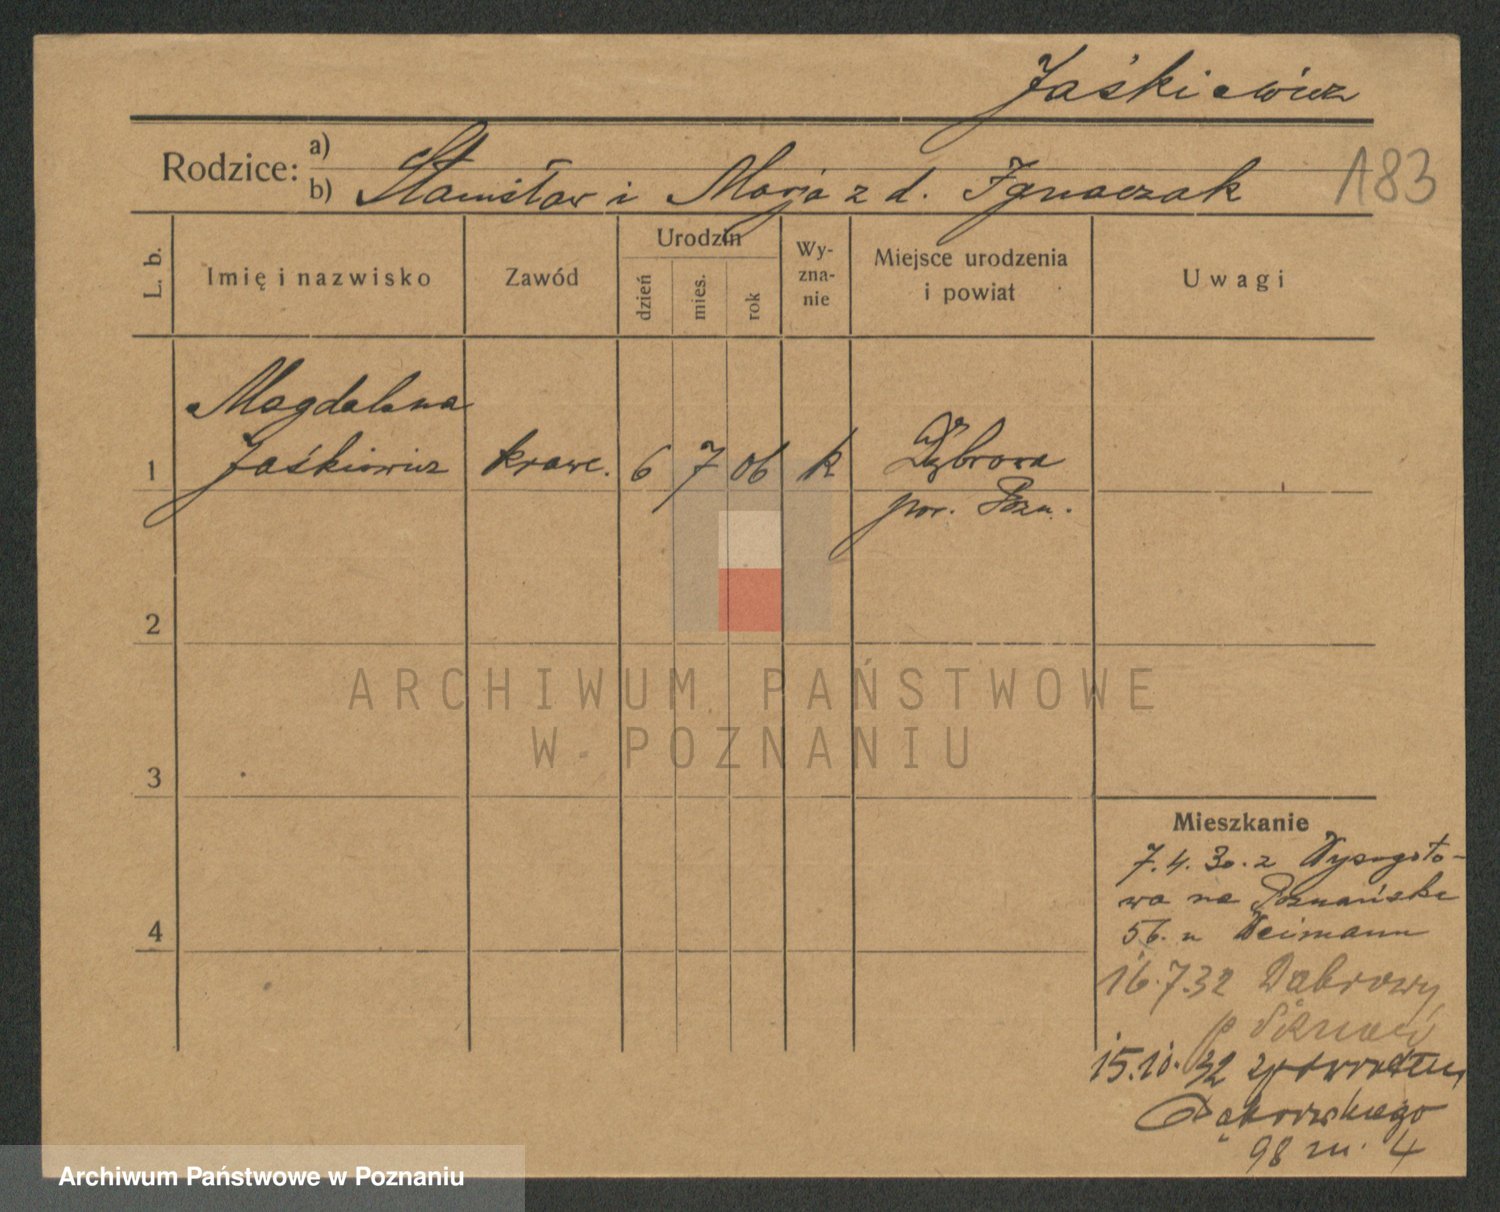 Jaśkiewicz
183
Rodzice: a)
b) Stanisław i Marja z d. Ignaczak
L. b.
Imię i nazwisko
Zawód
Urodzin
dzień
mies.
rok
Wy-
zna-
nie
Miejsce urodzenia
i powiat
Uwagi
Magdalena
1 Jaśkiewicz krawc. 6 7 06 k Dąbrowa
pow. Pozn.
2
ARCHIWUM PAŃSTWOWE
W POZNANIU
3
Mieszkanie
7.4.30. z Wysogoto-
wa na Poznańska
4
56. u Weimann
16.7.32 Dąbrowy
p
15.10.32 z powrotem
Dąbrowskiego
98 m. 4
Archiwum Państwowe w Poznaniu